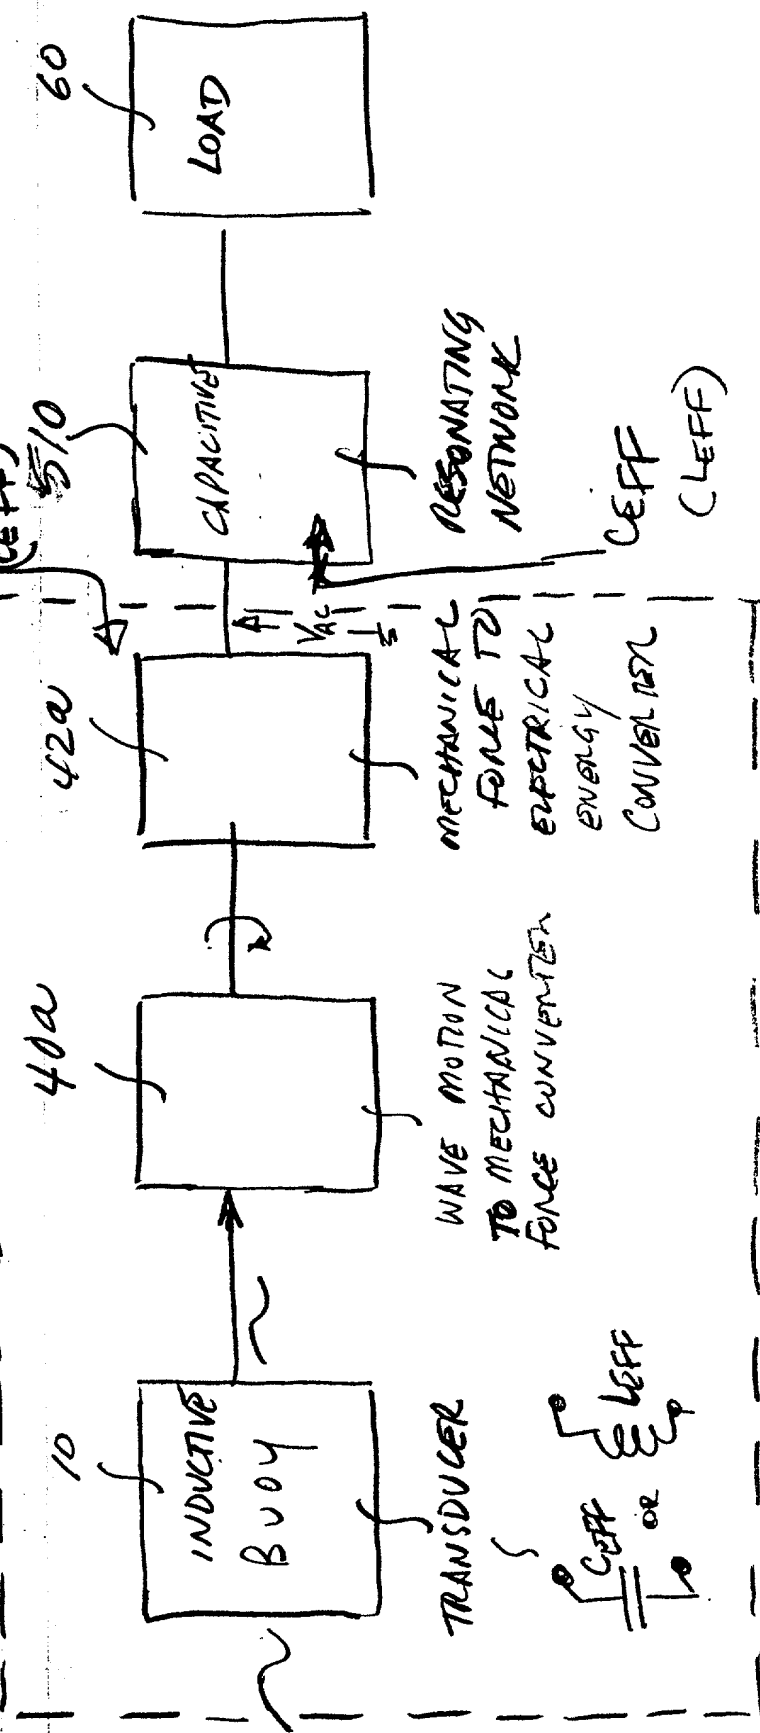 10
INDUCTIVE
BUOY
TRANSDUCER
CEFF
OR
LEFF
40a
WAVE MOTION
TO MECHANICAL
FORCE CONVERTER
42a
MECHANICAL
FORCE TO
ELECTRICAL
ENERGY
CONVERTER
VAC
510
CAPACITIVE
RESONATING
NETWORK
CEFF
(LEFF)
60
LOAD